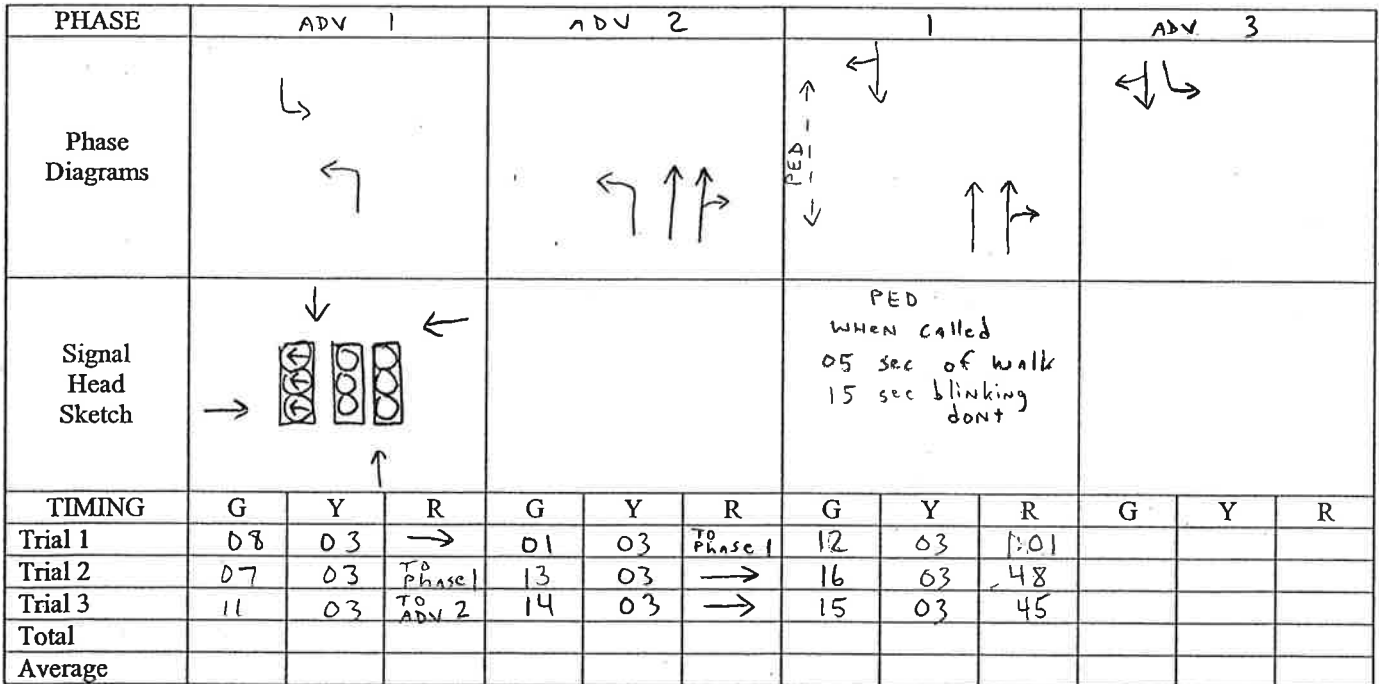 PHASE ADV 1 ADV 2 1 ADV 3
Phase
Diagrams
PED
Signal
Head
Sketch
PED
WHEN CAlled
05 sec of walk
15 sec blinking
dont
TIMING G Y R G Y R G Y R G Y R
Trial 1 08 03 → 01 03 TO Phase 1 12 03 1:01
Trial 2 07 03 TO Phase 1 13 03 → 16 03 48
Trial 3 11 03 TO ADV 2 14 03 → 15 03 45
Total
Average